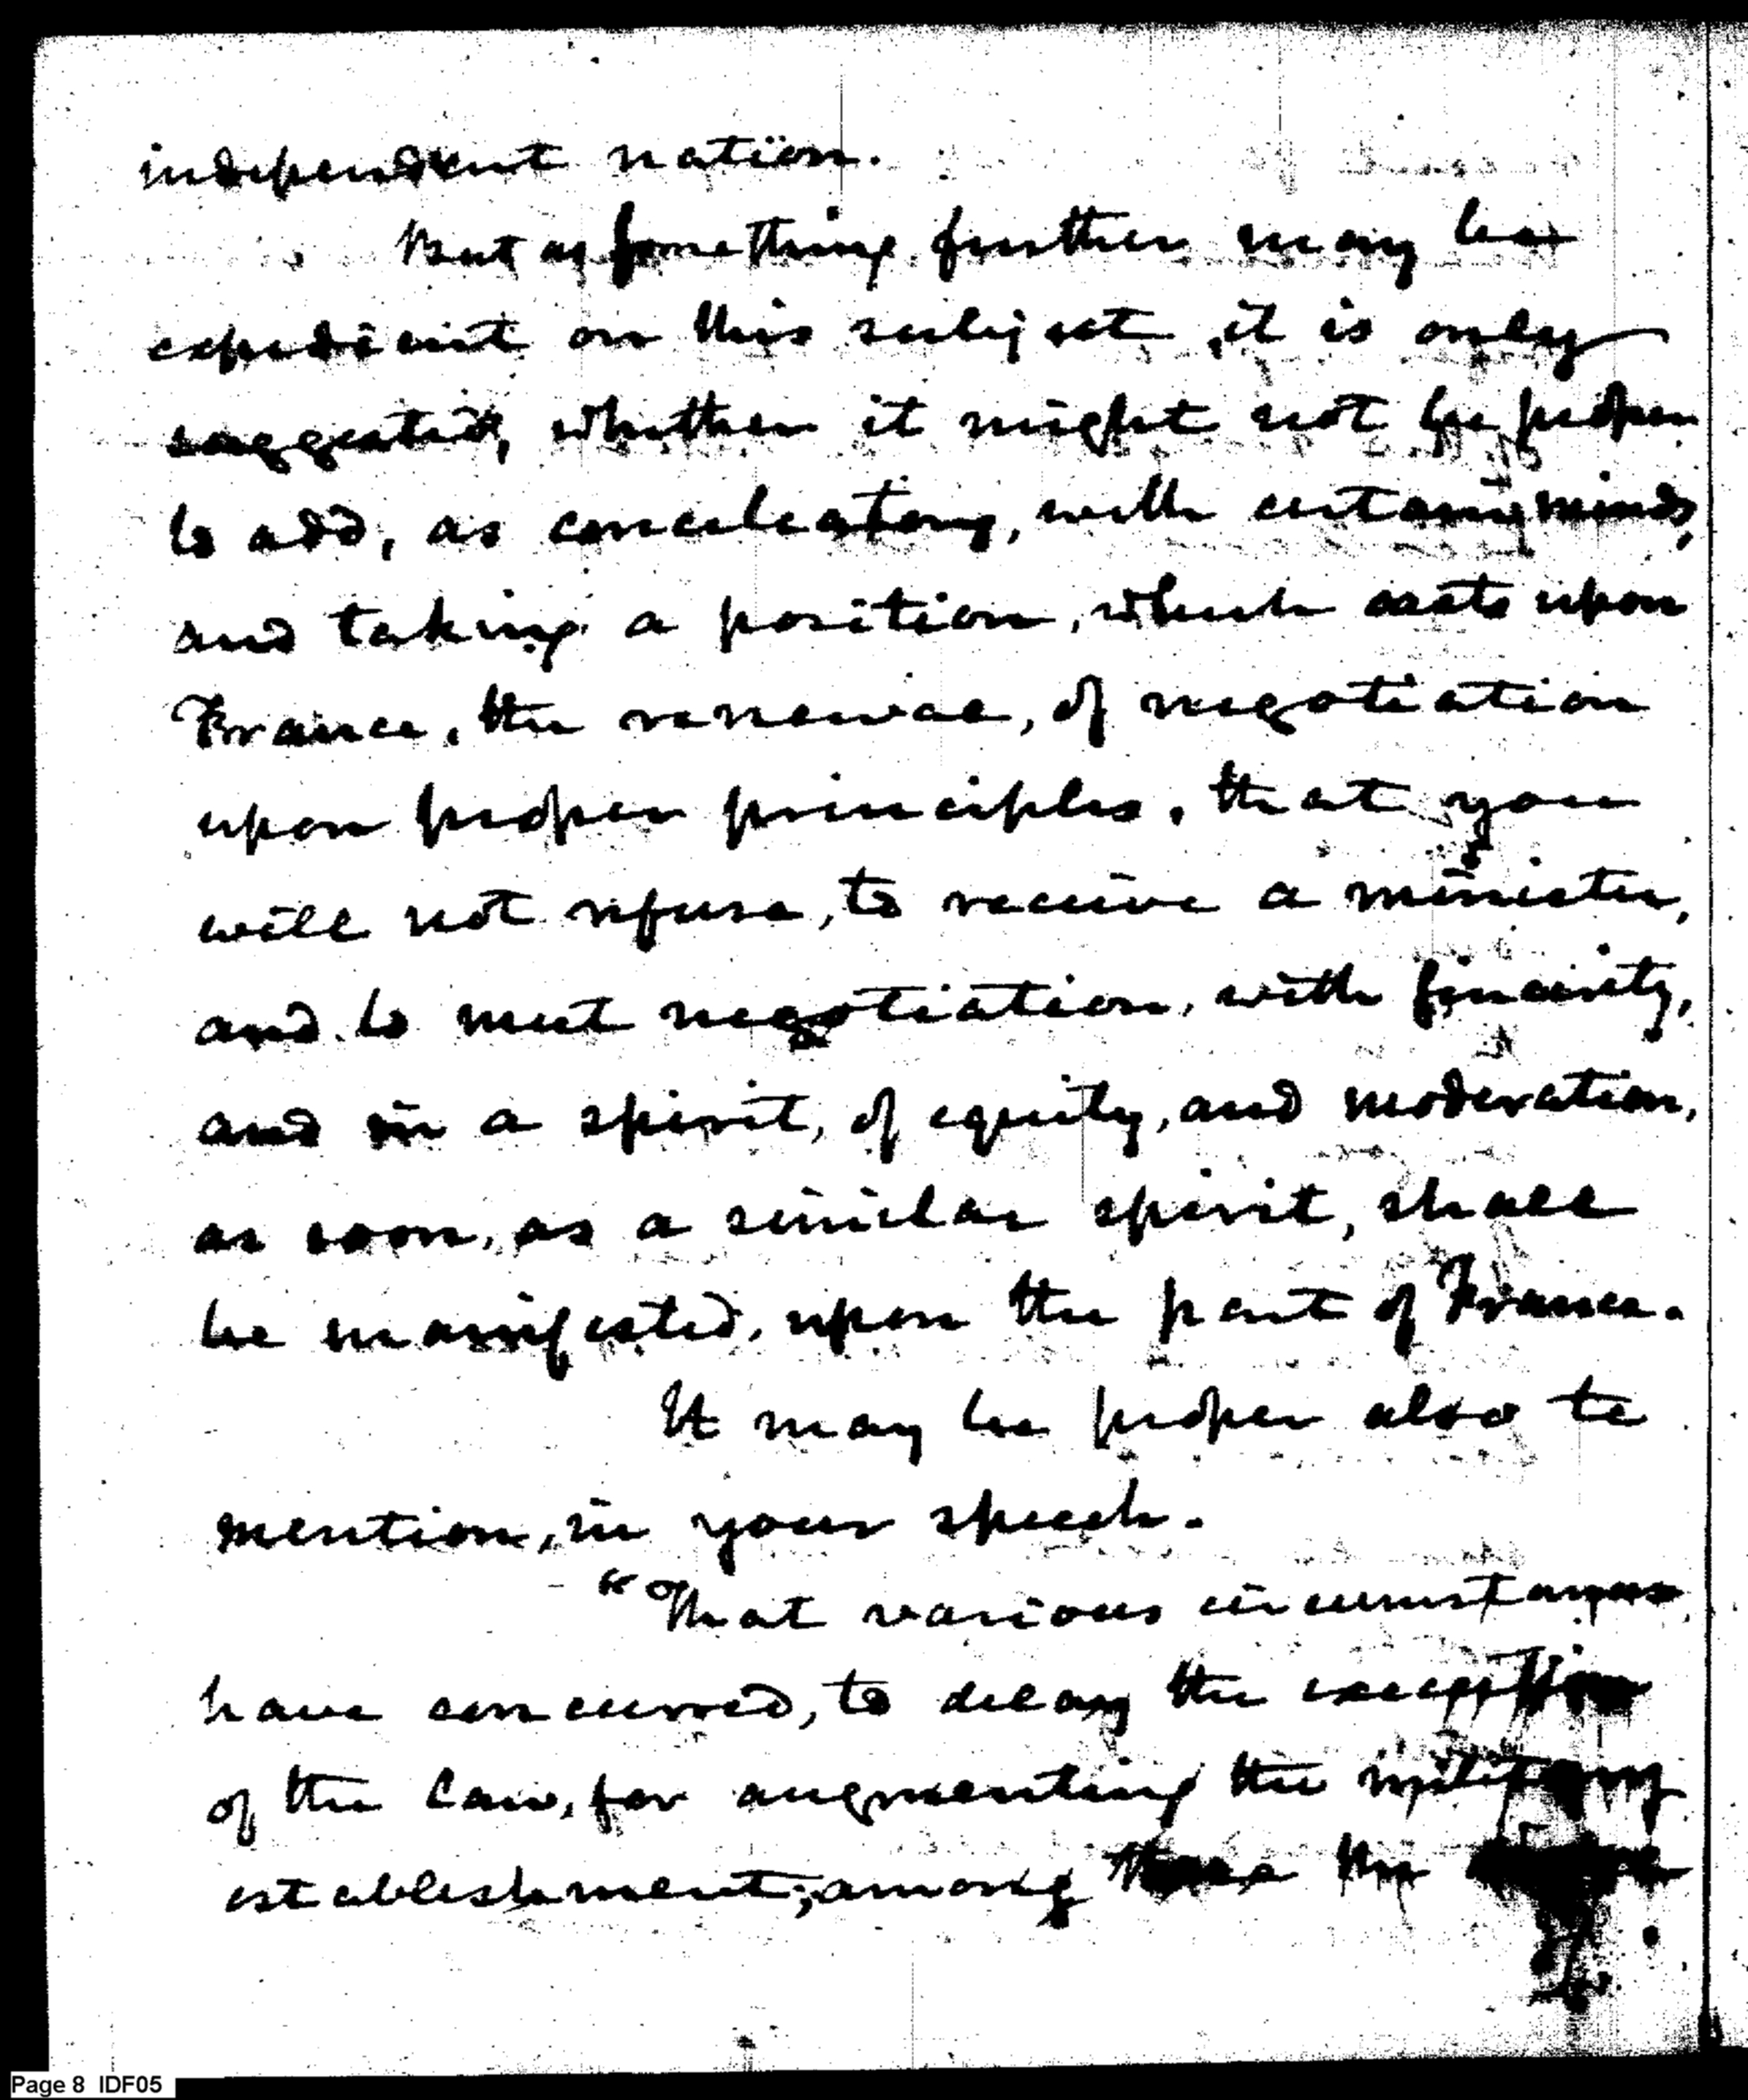 independent nation.
But as something further may be
expedient on this subject, it is only
suggested, whether it might not be proper
to add, as conciliatory, with certain minds,
and taking a position, which casts upon
France, the renewal, of negotiation
upon proper principles, that you
will not refuse, to receive a minister,
and to meet negotiation, with sincerity,
and in a spirit, of equity, and moderation,
as soon, as a similar spirit, shall
be manifested, upon the part of France.
It may be proper also to
mention, in your speech.
"That various circumstances
have concurred, to delay the execution
of the law, for augmenting the military
establishment; among these the
Page 8 IDF05